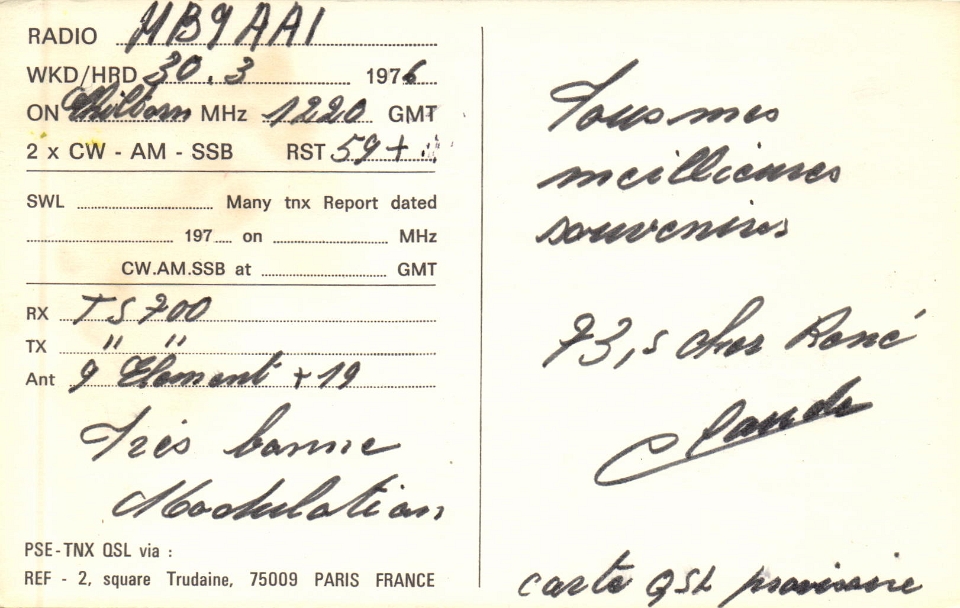 RADIO HB9AAI
WKD/HRD 30.3 1976
ON MHz 1220 GMT
2 x CW - AM - SSB RST 59+
SWL Many tnx Report dated
197 on MHz
CW.AM.SSB at GMT
RX TS 700
TX " "
Ant 9 Element + 19
Très bonne
Modulation
PSE-TNX QSL via :
REF - 2, square Trudaine, 75009 PARIS FRANCE
Tous mes
meillieures
souvenirs
73,s cher René
Claude
carte QSL provisoire